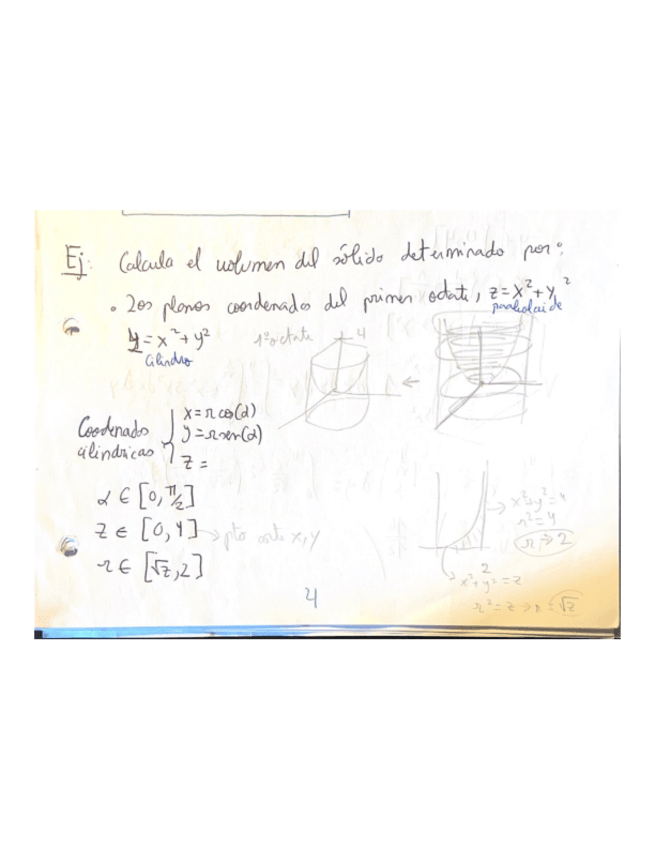 Ej: Calcula el volumen del sólido determinado por:
• Los planos coordenados del primer octate, z = x² + y²
paraboloide
4 = x² + y²
cilindro
1º octate
4
Coordenadas cilíndricas
x = r cos(α)
y = r sen(α)
z =
α ∈ [0, π/2]
z ∈ [0, 4] → pto corte x, y
r ∈ [√z, 2]
x² + y² = 4
r² = 4
r → 2
2
x² + y² = z
r² = z → r = √z
4